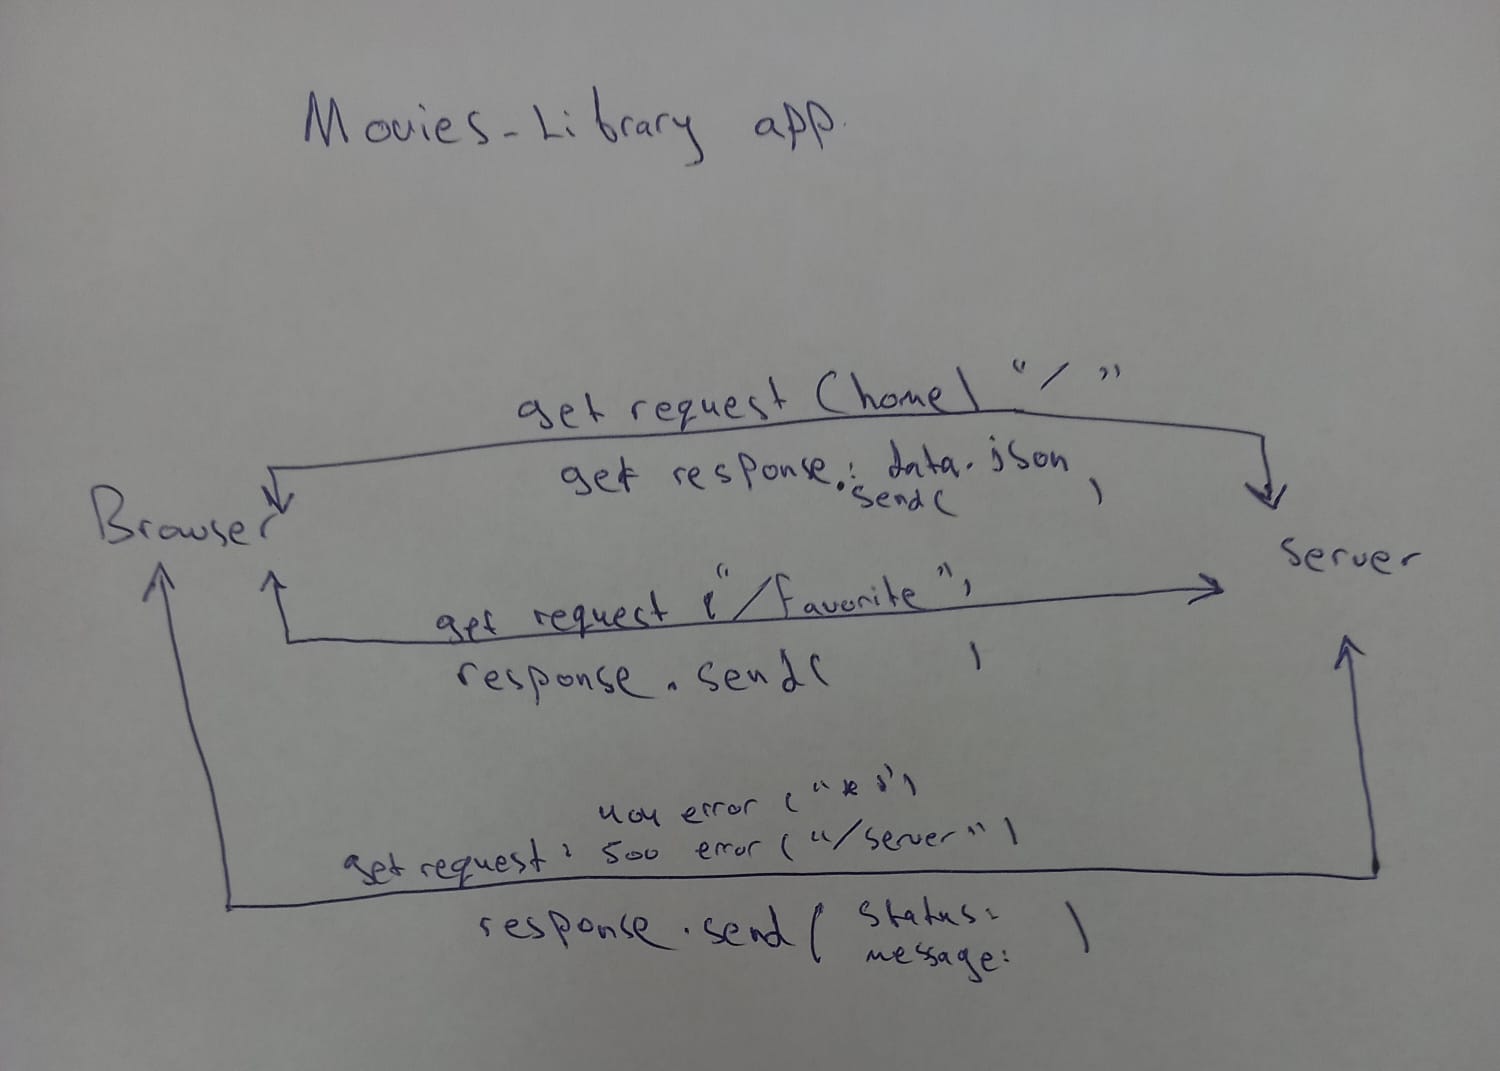 Movies-Library app.
get request (home) "/"
get response.: data.json
send( )
Browser
Server
get request ("/favorite")
response.send( )
404 error ("*")
get request: 500 error ("/server")
response.send( status:
message: )